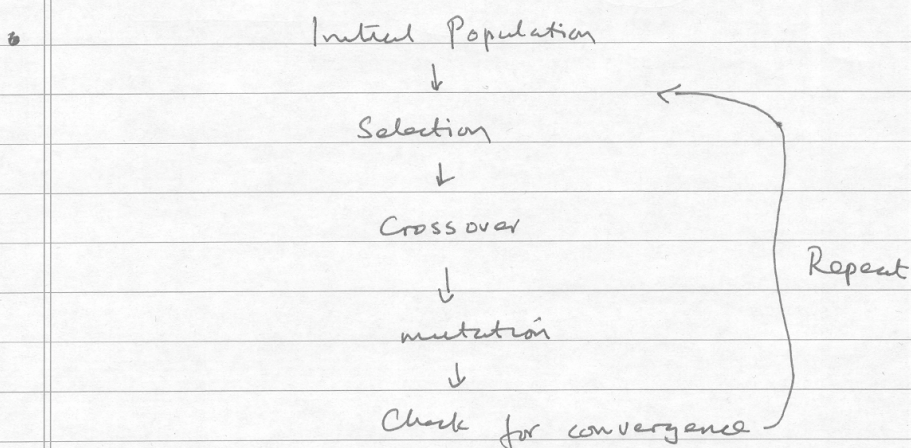 Initial Population
Selection
Crossover
mutation
Repeat
Check for convergence